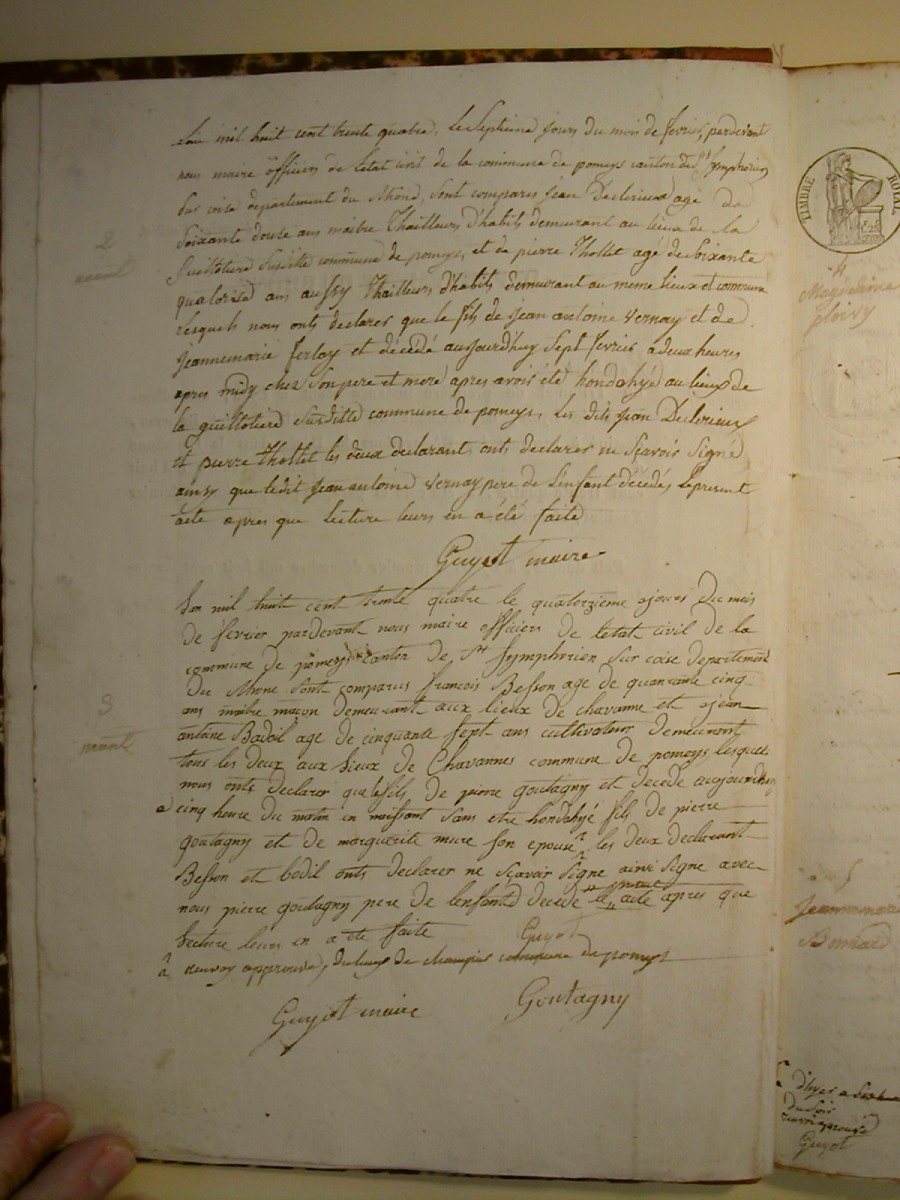 Lan mil huit cent trente quatre, le Septieme jours du mois de fevrier, pardevant
nous maire officiers de letat civil de la commune de pomeys canton de St Symphorien
Sur coise departement du Rhône, sont comparus jean Declerieux agé de
Soixante douze ans maitre Thailleurs d'habits demeurant au lieux de la
Guillotiere Susditte commune de pomeys, et de pierre Thollet agé de Soixante
quatorze ans aussy Thailleurs d'habits demeurant au meme lieux et commune
Lesquels nous onts declarer que le fils de jean antoine Vernay et de
jeannemarie ferlay et décédé aujourdhuy Sept fevrier a deux heures
apres midy chez Son pere et mere apres avoir été hondohyé au lieux de
la guillotiere Susditte commune de pomeys, Les dits jean Declerieux
et pierre thollet les deux declarant, onts declarer ne Sçavoir Signé
ainsy que ledit jean antoine Vernay pere de L'enfant décédés, le present
acte apres que Lecture leurs en a été faite
Guyot maire
2
neant
Lan mil huit cent trente quatre le quatorzième ajours du mois
de fevrier pardevant nous maire officiers de letat civil de la
commune de pomeys canton de St Symphorien Sur coise departement
du Rhone sont comparus francois Besson age de quarante cinq
ans maitre maçon demeurant aux lieux de chavanne et ajean
antoine Badoil age de cinquante sept ans cultivateur demeurant
tous les deux aux lieux de Chavannes commune de pomeys lesquels
nous onts declarer que le fils de pierre goutagny et decede aujourdhuy
a cinq heure du matin en naissant sans etre hondohyé fils de pierre
goutagny et de marguerite mure son epouse les deux declarant
Besson et bodil onts declarer ne sçavoir signe ainsi signe avec
nous pierre goutagny pere de lenfant decede le present acte apres que
lecture leurs en a ete faite Guyot
renvoy approuvé, du lieux de commune de pomeys
Guyot maire Goutagny
3
neant
TIMBRE ROYAL
4
Magdelaine
ploivy
5
Jeannemarie
du soir
Guyot